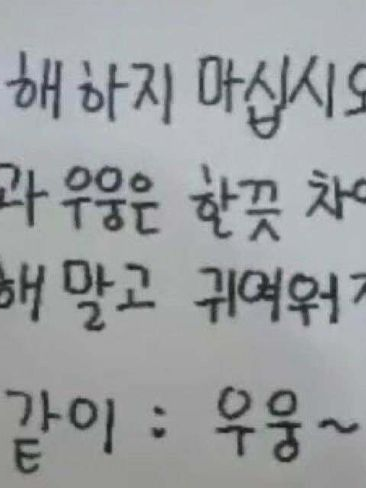 해하지 마십시오
과 우웅은 한끗 차이
해 말고 귀여워
같이 : 우웅~